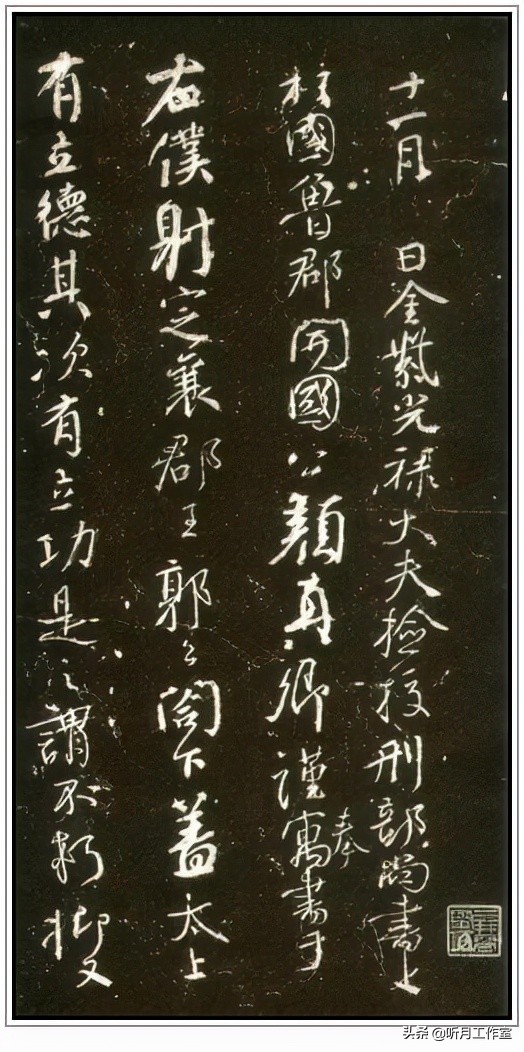 十一月 日金紫光禄大夫检挍刑部尚書上
柱國魯郡開國公顔真卿謹奉寓書于
右僕射定襄郡王郭公閤下蓋太上
有立德其次有立功是之謂不朽抑又
头条 @听月工作室